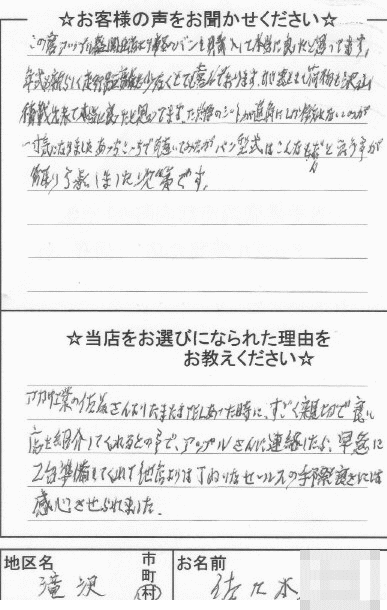 ☆お客様の声をお聞かせください☆
この度アップル盛岡南店より軽のバンを購入して本当に良かったと思ってます。
年式も新らしく走行距離も少なくとても喜んでおります。かさ高とまた荷物も沢山
積載出来て本当に良かったと思ってます。ただ後のシートが直角にしか
一寸気になりました あっちこっちで聞いてみたがバン型式はこんなもんだと云う事が
解り了承しました次第です。
☆当店をお選びになられた理由を
お教えください☆
の佐藤さんがたまたま あった時に、すごく親切で良い
店を紹介してくれるとの事で、アップルさんに連絡したら、早急に
2台準備をしてくれて他店よりは丁ねいなセールスの手際良さには
感心させられました。
地区名 滝沢 市町村 お名前 佐々木